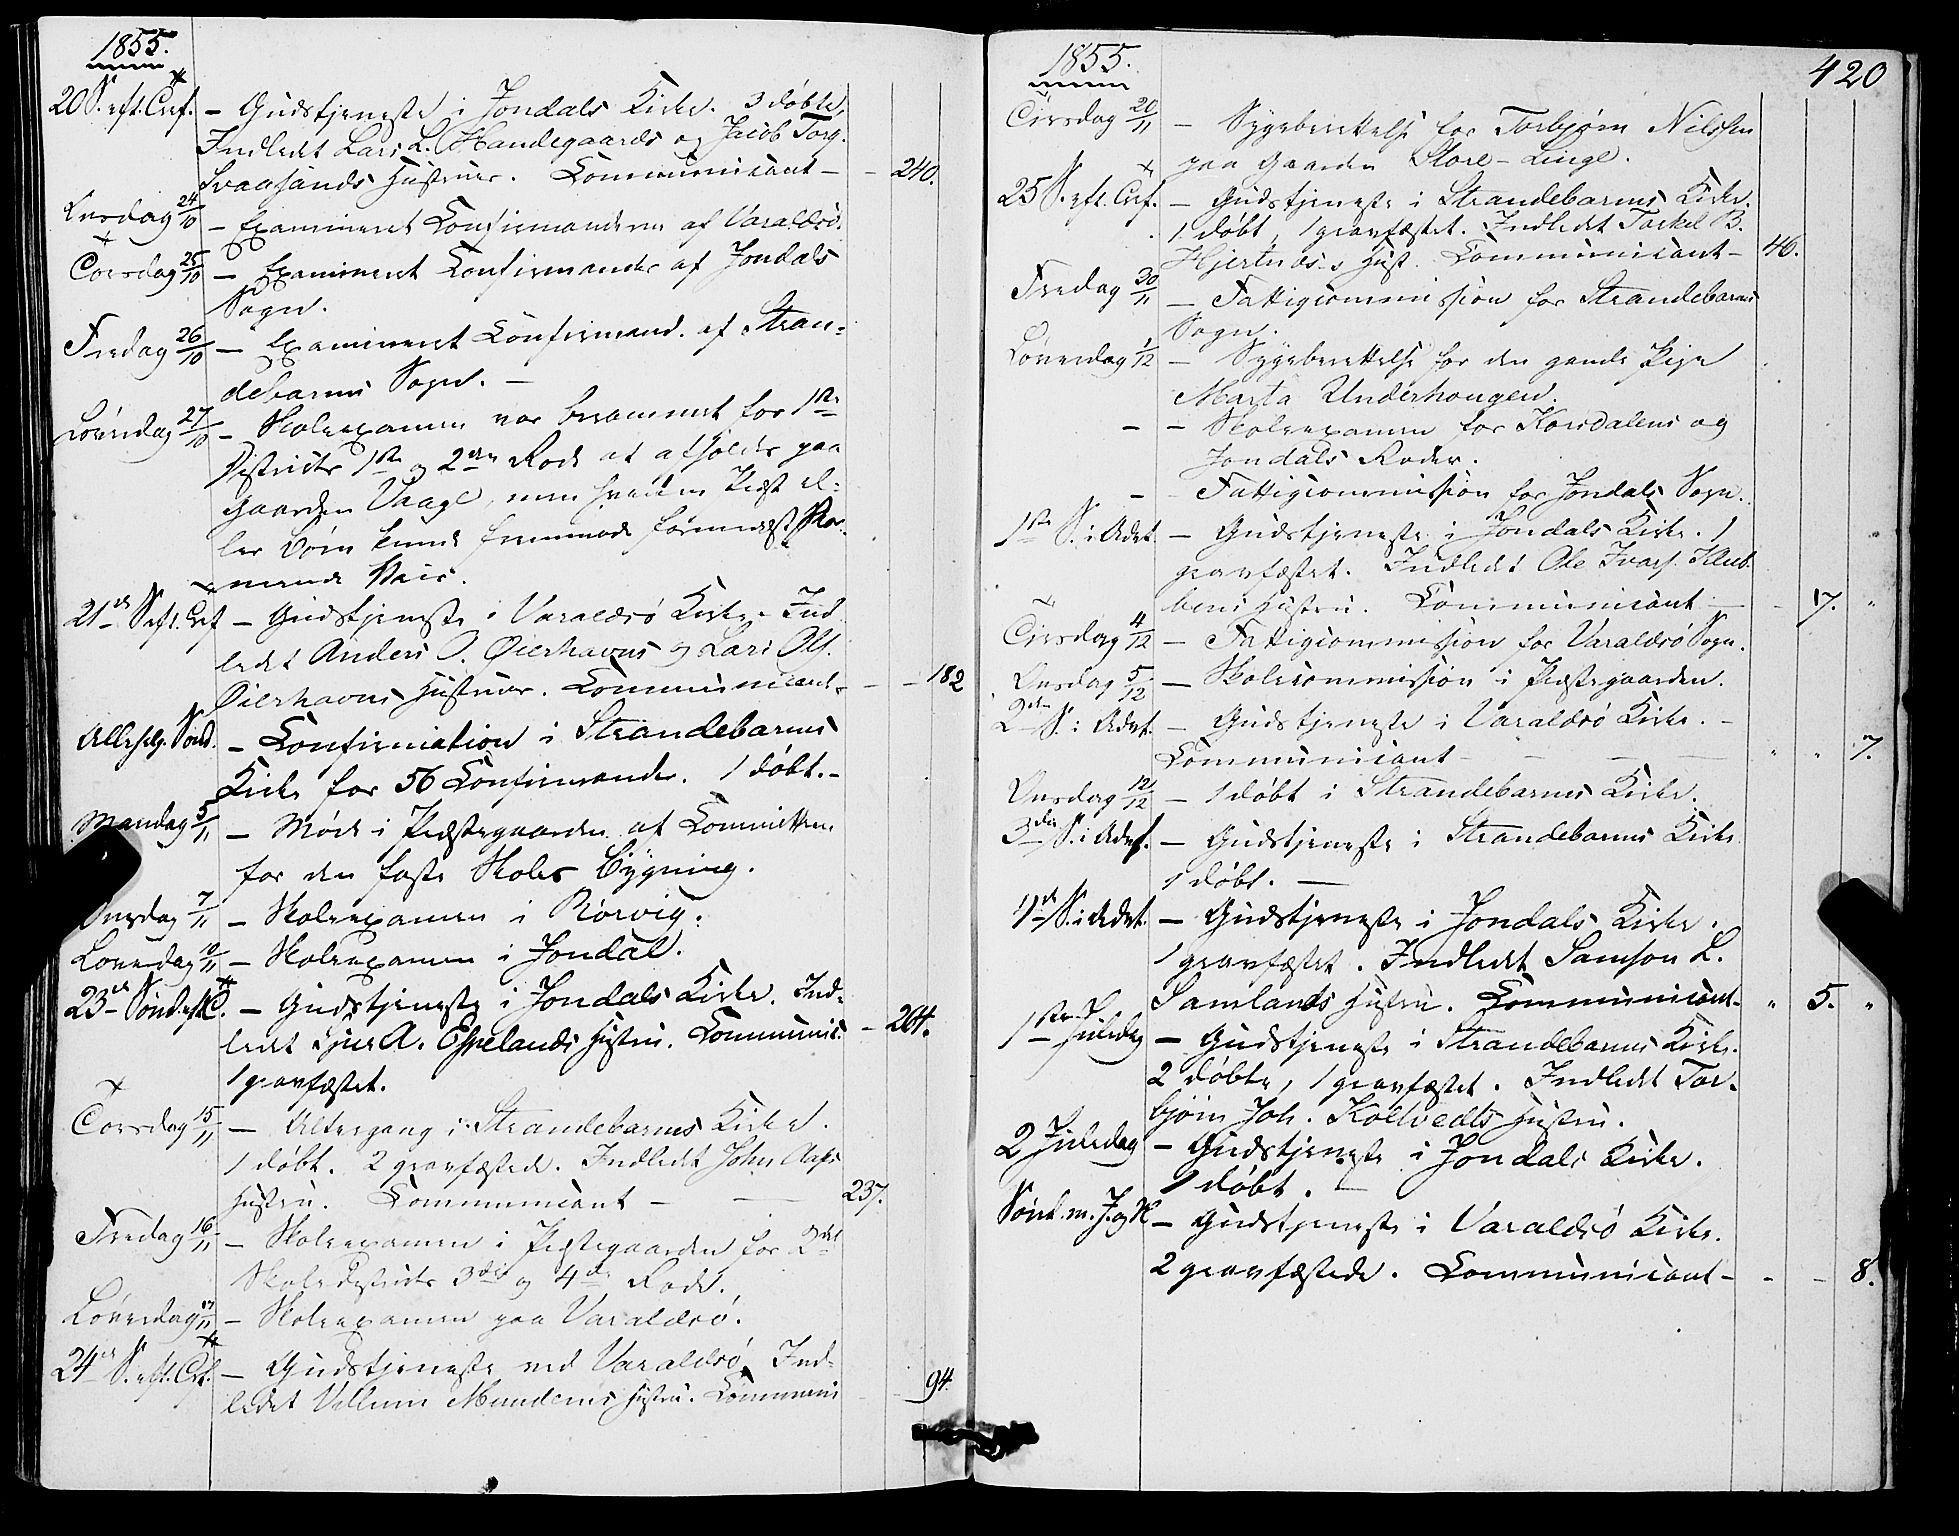 1855.
20 S. eft. Tref. – Gudstjeneste i Jondals Kirke. 3 døbte,
Indledt Lars L. Handegaards og Jacob Torg.
Svaasands Hustruer. Communicant – – 240.
Onsdag 24/10 – Examineret Confirmanderne af Varaldsö.
Torsdag 25/10 – Examineret Confirmander af Jondals
Sogn.
Fredag 26/10 – Examineret Confirmand. af Stran-
debarms Sogn. –
Löverdag 27/10 – Skoleexamen var berammet for 1ste
Districts 1ste og 2den Rode at afholdes paa
Gaarden Vaage, men hverken Præst el-
ler Børn kunde fremmøde formedelst
Veir.
21de S. eft. Tref – Gudstjeneste i Varaldsö Kirke – Ind
ledt Anders O. Øierhavns og Lars Ols.
Øierhavns Hustruer. Communicant – – 182
Allehelg. Sönd. – Confirmation i Strandebarms
Kirke for 56 Confirmander. 1 døbt. –
Mandag 5/11 – Møde i Præstegaarden at Committeen
for den faste Skoles Bygning.
Onsdag 7/11 – Skoleexamen i Rörvig.
Löverdag 10/11 – Skoleexamen i Jondal.
23de Sönd. eft. T. – Gudstjeneste i Jondals Kirke. Ind-
ledt A. Espelands Hustru. Communic. – 204.
1 gravfæstet.
Torsdag 15/11 – Altergang i Strandebarms Kirke.
1 døbt. 2 gravfæstede. Indledt John Aases
Hustru. Communicant – – 237.
Fredag 16/11 – Skoleexamen i Præstegaarden for 2det
Skoledistricts 3die og 4de Rode.
Löverdag 17/11 – Skoleexamen paa Varaldsö.
24de S. eft. Tref. – Gudstjeneste ved Varaldsö. Ind-
ledet Villum Mundems Hustru. Communic – 94.
1855.
420
Tirsdag 20/11 – Sygeberettelse for Torbjørn Nilssen
paa Gaarden Store-Linge.
25 S. eft. Tref. – Gudstjeneste i Strandebarms Kirke.
1 døbt, 1 gravfæstet. Indledt Torkel B.
Hjertnæs's Hust. Communicant – 46.
Fredag 30/11 – Fattigcommission for Strandebarms
Sogn.
Löverdag 1/12 – Sygeberettelse for den gamle Pige
Marta Underhougen.
– – Skoleexamen for Korsdalens og
Jondals Roder.
– Fattigcommission for Jondals Sogn.
1ste S. i Advt. – Gudstjeneste i Jondals Kirke. 1
gravfæstet. Indledt Ole Ivars. Klub-
bens Hustru. Communicant – – 17. "
Tirsdag 4/12 – Fattigcommission for Varaldsö Sogn.
Onsdag 5/12 – Skolecommission i Præstegaarden.
2den S. i Advt. – Gudstjeneste i Varaldsö Kirke. –
Communicant – – – " " 7.
Onsdag 12/12 – 1 døbt i Strandebarms Kirke.
3die S. i Advt. – Gudstjeneste i Strandebarms Kirke
1 døbt. –
4de S. i Advt. – Gudstjeneste i Jondals Kirke.
1 gravfæstet. Indledt Samson L.
Samlands Hustru. Communicant – " 5. "
1ste Juledag – Gudstjeneste i Strandebarms Kirke.
2 døbte, 1 gravfæstet. Indledt Tor-
bjørn Joh. Koltvedts Hustru.
2 Juledag – Gudstjeneste i Jondals Kirke.
1 døbt. –
Sönd. m. J. og N – Gudstjeneste i Varaldsö Kirke.
2 gravfæstede. Communicant – – – 8.